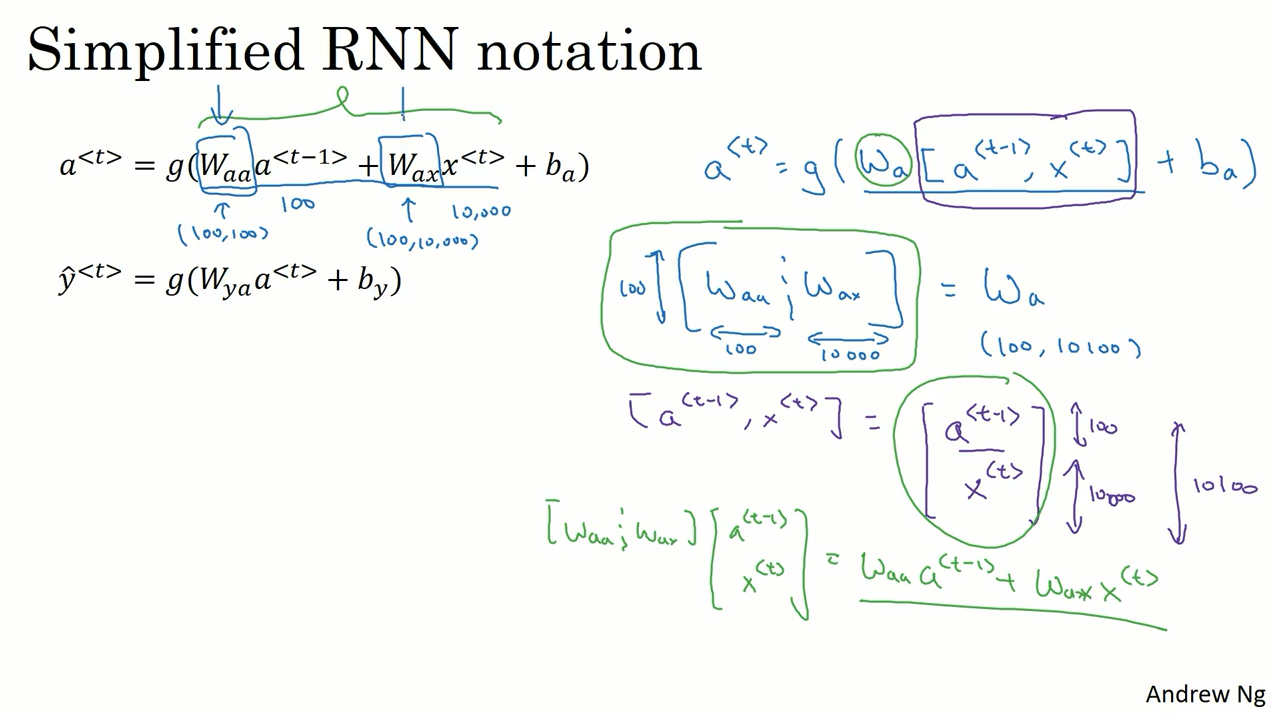 Simplified RNN notation
a^{<t>} = g(W_{aa}a^{<t−1>} + W_{ax}x^{<t>} + b_a)
100
10,000
(100,100)
(100,10,000)
ŷ^{<t>} = g(W_{ya}a^{<t>} + b_y)
a^{<t>} = g(W_a[a^{<t-1>}, x^{<t>}] + b_a)
100 [W_{aa} ¦ W_{ax}] = W_a
100
10000
(100, 10100)
[a^{<t-1>}, x^{<t>}] = [a^{<t-1>}
x^{<t>}]
100
10000
10100
[W_{aa} ¦ W_{ax}] [a^{<t-1>}
x^{<t>}] = W_{aa}a^{<t-1>} + W_{ax}x^{<t>}
Andrew Ng